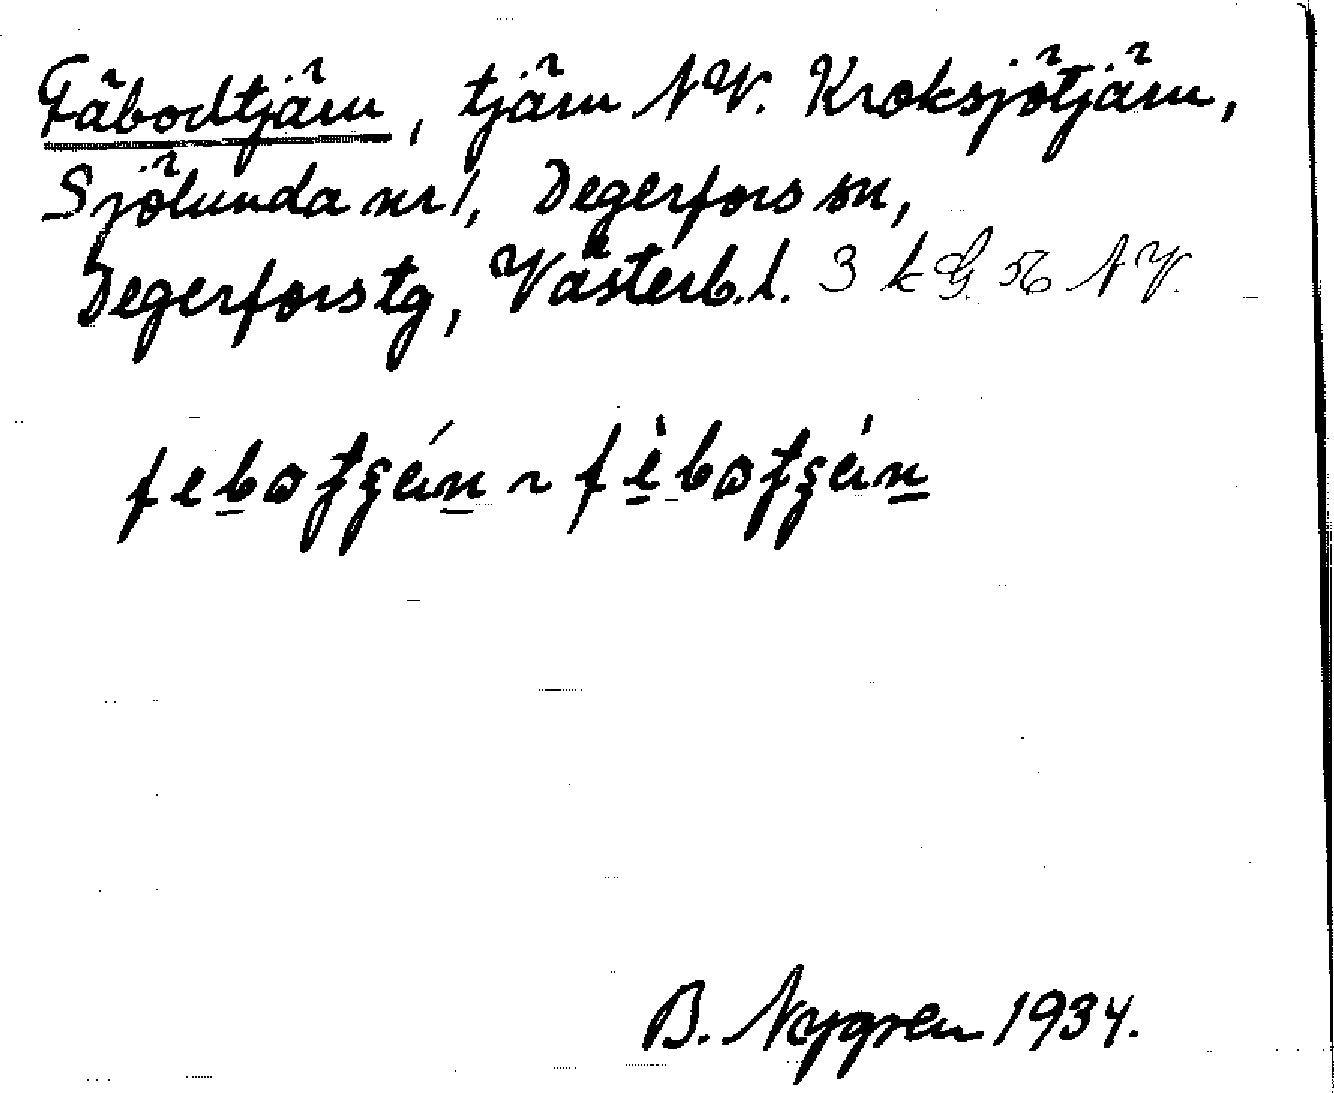 Fäbodtjärn, tjärn NV. Kroksjötjärn,
Sjölunda nr 1, Degerfors sn,
Degerfors tg, Västerb. l. 3 k G 56 NV.
B. Nygren 1934.